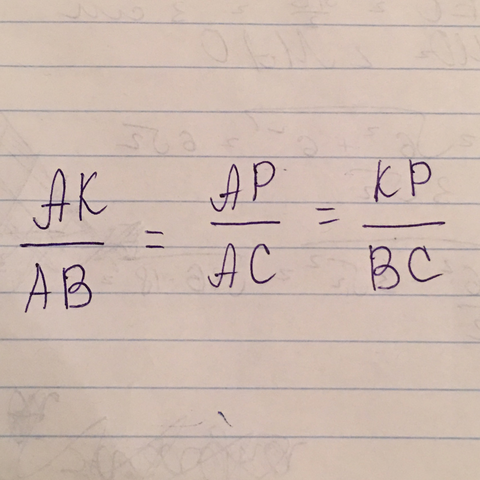 AK/AB = AP/AC = KP/BC